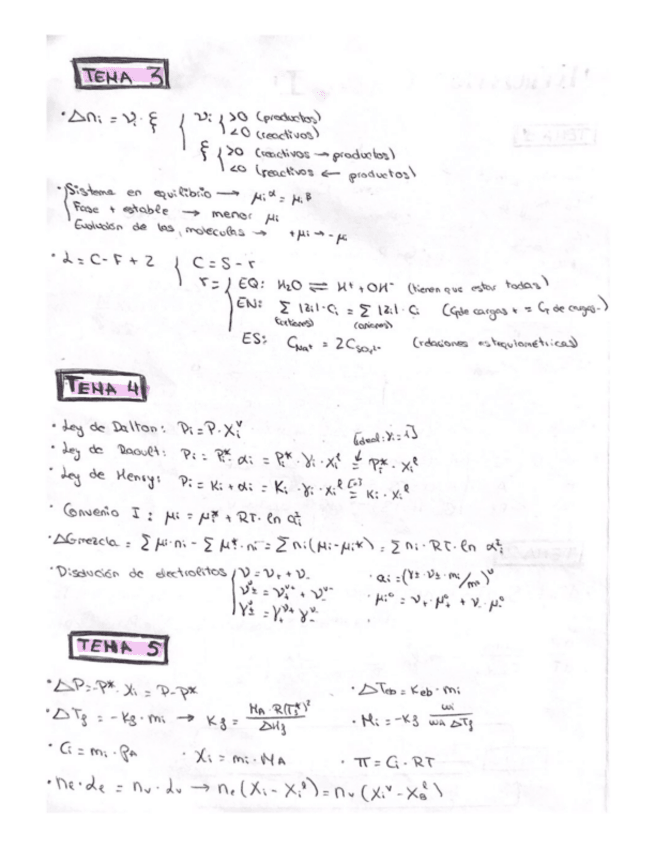 TEMA 3
· Δni = νi · ξ { νi { >0 (productos)
<0 (reactivos)
ξ { >0 (reactivos → productos)
<0 (reactivos ← productos)
· { Sistema en equilibrio → μi^α = μi^β
Fase + estable → menor μi
Evolución de las moléculas → +μi → -μi
· L = C - F + 2 { C = S - r
r = { EQ: H2O ⇌ H+ + OH- (tienen que estar todas)
EN: Σ |zi| · Ci = Σ |zi| · Ci (C de cargas + = C de cargas -)
(cationes) (aniones)
ES: CNa+ = 2CSO4 2- (relaciones estequiométricas)
TEMA 4
· Ley de Dalton: Pi = P · Xi^v
· Ley de Raoult: Pi = Pi* · αi = Pi* · γi · Xi^l = Pi* · Xi^l [ideal: γi = 1]
· Ley de Henry: Pi = Ki + αi = Ki · γi · Xi^l = Ki · Xi^l
· Convenio I: μi = μi* + RT · ln ai
· ΔGmezcla = Σ μi · ni - Σ μi* · ni = Σ ni (μi - μi*) = Σ ni · RT · ln ai
· Disolución de electrolitos { ν = ν+ + ν- · ai = (γ± · ν± · mi/m0)^ν
ν±^ν = ν+^ν+ · ν-^ν- · μi° = ν+ · μ+° + ν- · μ-°
γ±^ν = γ+^ν+ · γ-^ν-
TEMA 5
· ΔP = -P* · Xi = P - P* · ΔTeb = Keb · mi
· ΔTf = -Kf · mi → Kf = MA · R(Tf*)² / ΔHf · Mi = -Kf wi / wA ΔTf
· Ci = mi · ρA · Xi = mi · MA · π = Ci · RT
· ne · de = nv · dv → ne (Xi - Xi^l) = nv (Xi^v - XB^l)